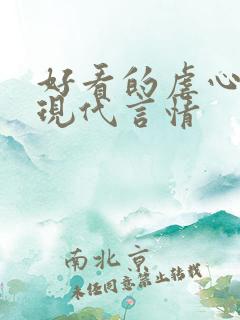 好看的虐心
現代言情
南北京
未任同意禁止转载